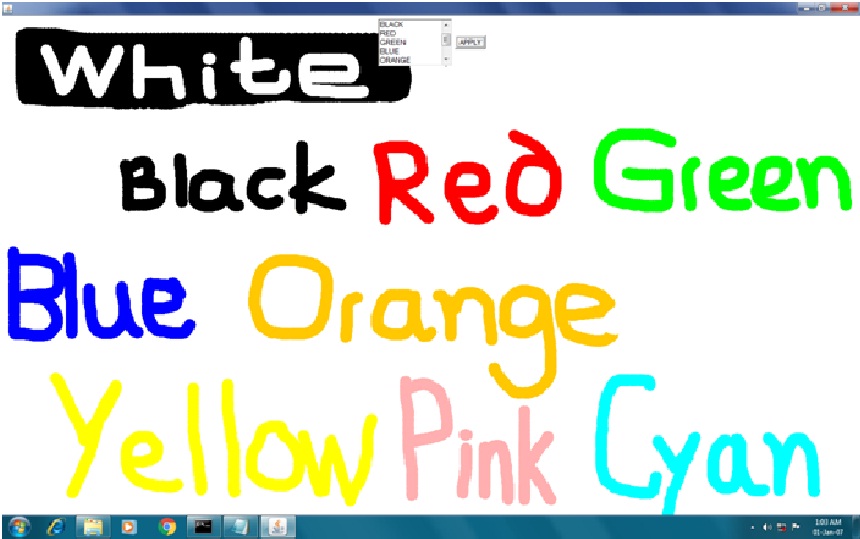 BLACK
RED
GREEN
BLUE
ORANGE
APPLY
White
Black Red Green
Blue Orange
Yellow Pink Cyan
1:03 AM
01-Jan-07